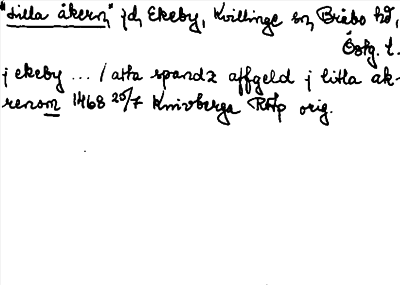 "Lilla åkern" jd, Ekeby, Kvillinge sn, Bråbo hd,
Östg. l.
j ekeby ... / atta spandz affgeld j litla ak-
renom 1468 20/7 Knivberga RAp orig.